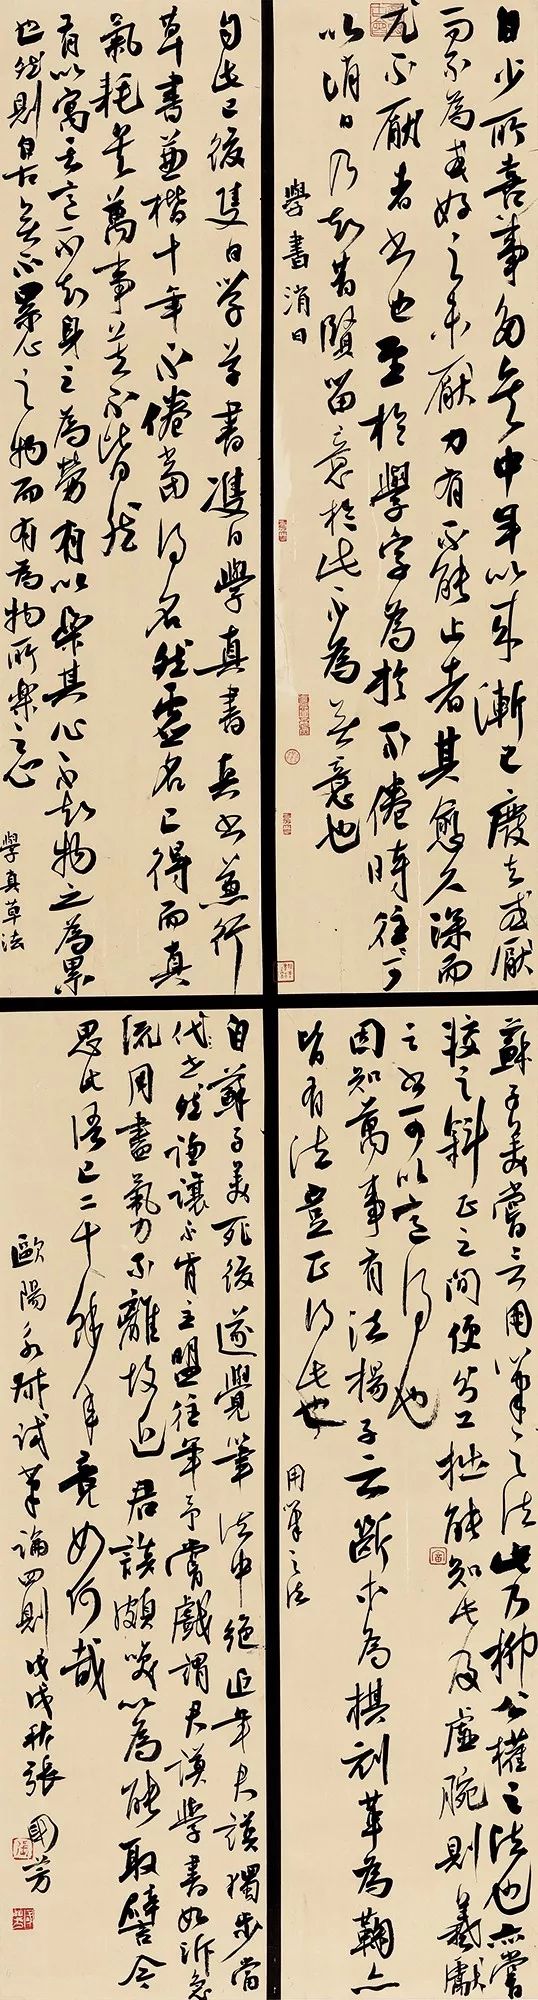 自少所喜事多矣中年以來漸已廢去或厭
而不為或好之未厭力有不能止者其愈久深而
尤不厭者書也至於學字為於不倦時往往可
以消日乃知昔賢留意於此不為無意也
學書消日
自此已後隻日學草書雙日學真書真書兼行
草書兼楷十年不倦當得名然虛名已得而真
氣耗矣萬事莫不皆然
有以寓其意不知身之為勞有以樂其心不知物之為累
也然則自古無不累心之物而有為物所樂之心
學真草法
蘇子美嘗言用筆之法此乃柳公權之法也亦嘗
較之斜正之間便分工拙能知此及虛腕則羲獻
之書可以意得也
因知萬事有法揚子云斷木為棋刓革為鞠亦
皆有法豈正得此也
用筆之法
自蘇子美死後遂覺筆法中絕近年君謨獨步當
代然謙讓不肯主盟往年予嘗戲謂君謨學書如泝急
流用盡氣力不離故處君謨頗笑以為能取譬今
思此語已二十餘年竟如何哉
歐陽永叔試筆論四則戊戌秋張國芳